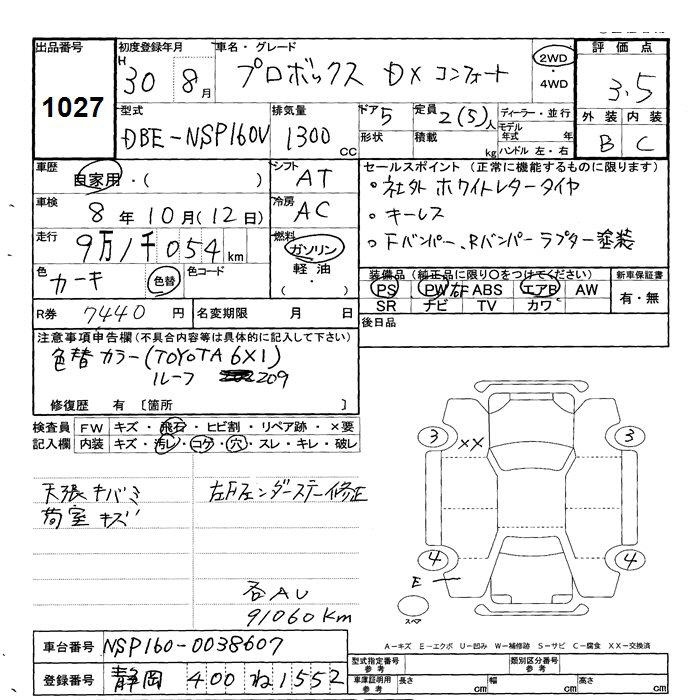 出品番号
1027
初度登録年月
H
30 8月
車名・グレード
プロボックス DXコンフォート
2WD
・
4WD
評価点
3.5
外装 内装
B C
型式
DBE-NSP160V
排気量
1300 CC
ドア 5
形状
定員 2(5)人
積載 kg
ディーラー・並行
モデル年式 年
ハンドル 左・右
車歴
自家用・( )
シフト
AT
車検
8年10月(12日)
冷房
AC
走行
9万1千054km
燃料
ガソリン
軽油
( ・ )
色
カーキ
色替
色コード
R券 7440円
名変期限 月 日
セールスポイント (正常に機能するものに限ります)
・社外 ホワイトレタータイヤ
・キーレス
・Fバンパー、Rバンパー ラプター塗装
装備品 (純正品に限り○をつけてください)
PS PW ABS エアB AW
SR ナビ TV カワ
新車保証書
有・無
後日品
注意事項申告欄 (不具合内容等は具体的に記入して下さい)
色替カラー(TOYOTA 6X1)
ルーフ 209
修復歴 有 [箇所 ]
検査員 FW キズ・飛石・ヒビ割・リペア跡・×要
記入欄 内装 キズ・汚レ・コゲ・穴・スレ・キレ・破レ
天張キバミ
荷室キズ
左Fフェンダーステー修正
呑AU
91060Km
3 XX 3
4 4
E
スペア
A－キズ E－エクボ U－凹み W－補修跡 S－サビ C－腐食 XX－交換済
車台番号 NSP160-0038607
登録番号 静岡 400 ね 1552
型式指定番号 参考
類別区分番号 参考
車庫証明用 参考
長さ cm 幅 cm 高さ cm